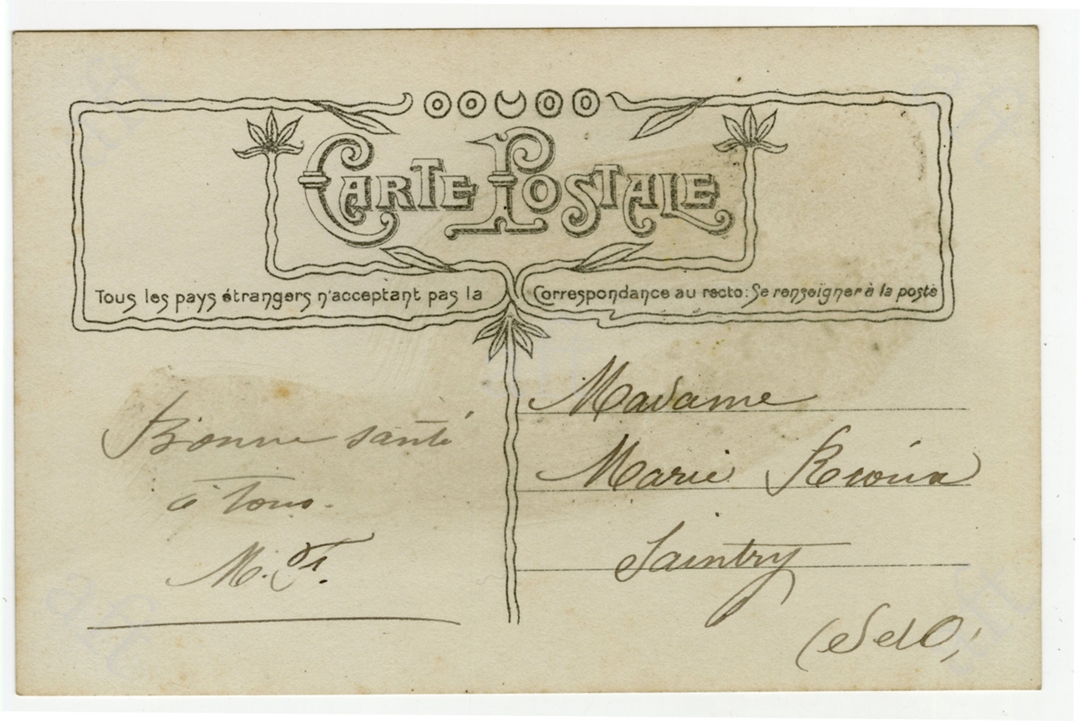 CARTE POSTALE
Tous les pays étrangers n'acceptant pas la Correspondance au recto: Se renseigner à la poste
Bonne santé
à tous.
M. F.
Madame
Marie
Saintry
(S et O)